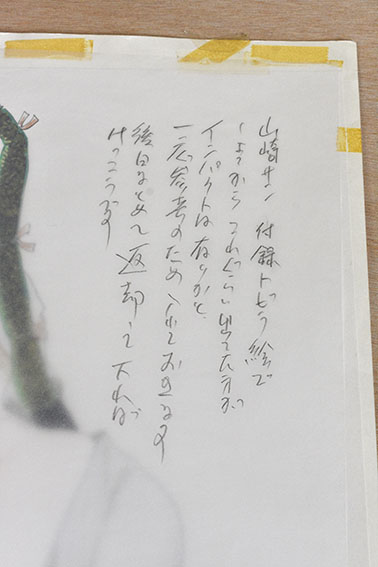 山崎サン 付録トビラ絵で
しょうから これぐらい出てた方が
インパクトは有るかと
一応参考のため入れておきます
後日まとめて返却して下されば
けっこうです